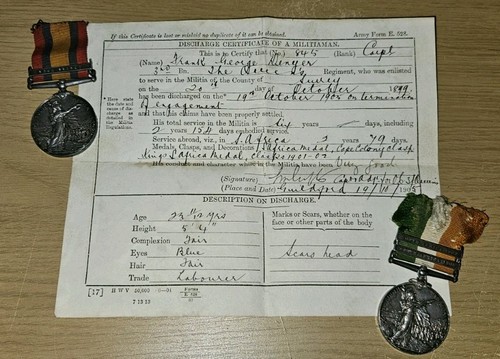 If this Certificate is lost or mislaid no duplicate of it can be obtained. Army Form E. 528.
DISCHARGE CERTIFICATE OF A MILITIAMAN.
This is to Certify that No. 845 (Rank)
(Name) Frank George
3rd Bn. The Regiment, who was enlisted
to serve in the Militia of the County of Surrey
on the 20th day of October 1899
*Here state the date and cause of discharge as detailed in the Militia Regulations.
has been discharged on the* 19th October 1905 on termination
of engagement
and that his claims have been properly settled.
His total service in the Militia is Six days, including
2 years 154 days embodied service.
Service abroad, viz., in S. Africa 2 years 79 days.
Medals, Clasps, and Decorations S. Africa Medal, Cape Colony clasp
Kings S. Africa Medal, clasps 1901-02
His conduct and character while in the Militia have been Very Good
(Signature)
(Place and Date) Guildford 19/10/1905
DESCRIPTION ON DISCHARGE.
Age 23 yrs
Height 5' 4"
Complexion Fair
Eyes Blue
Hair Fair
Trade Labourer
Marks or Scars, whether on the face or other parts of the body
Scars head
[17] H W V
Forms
E. 528